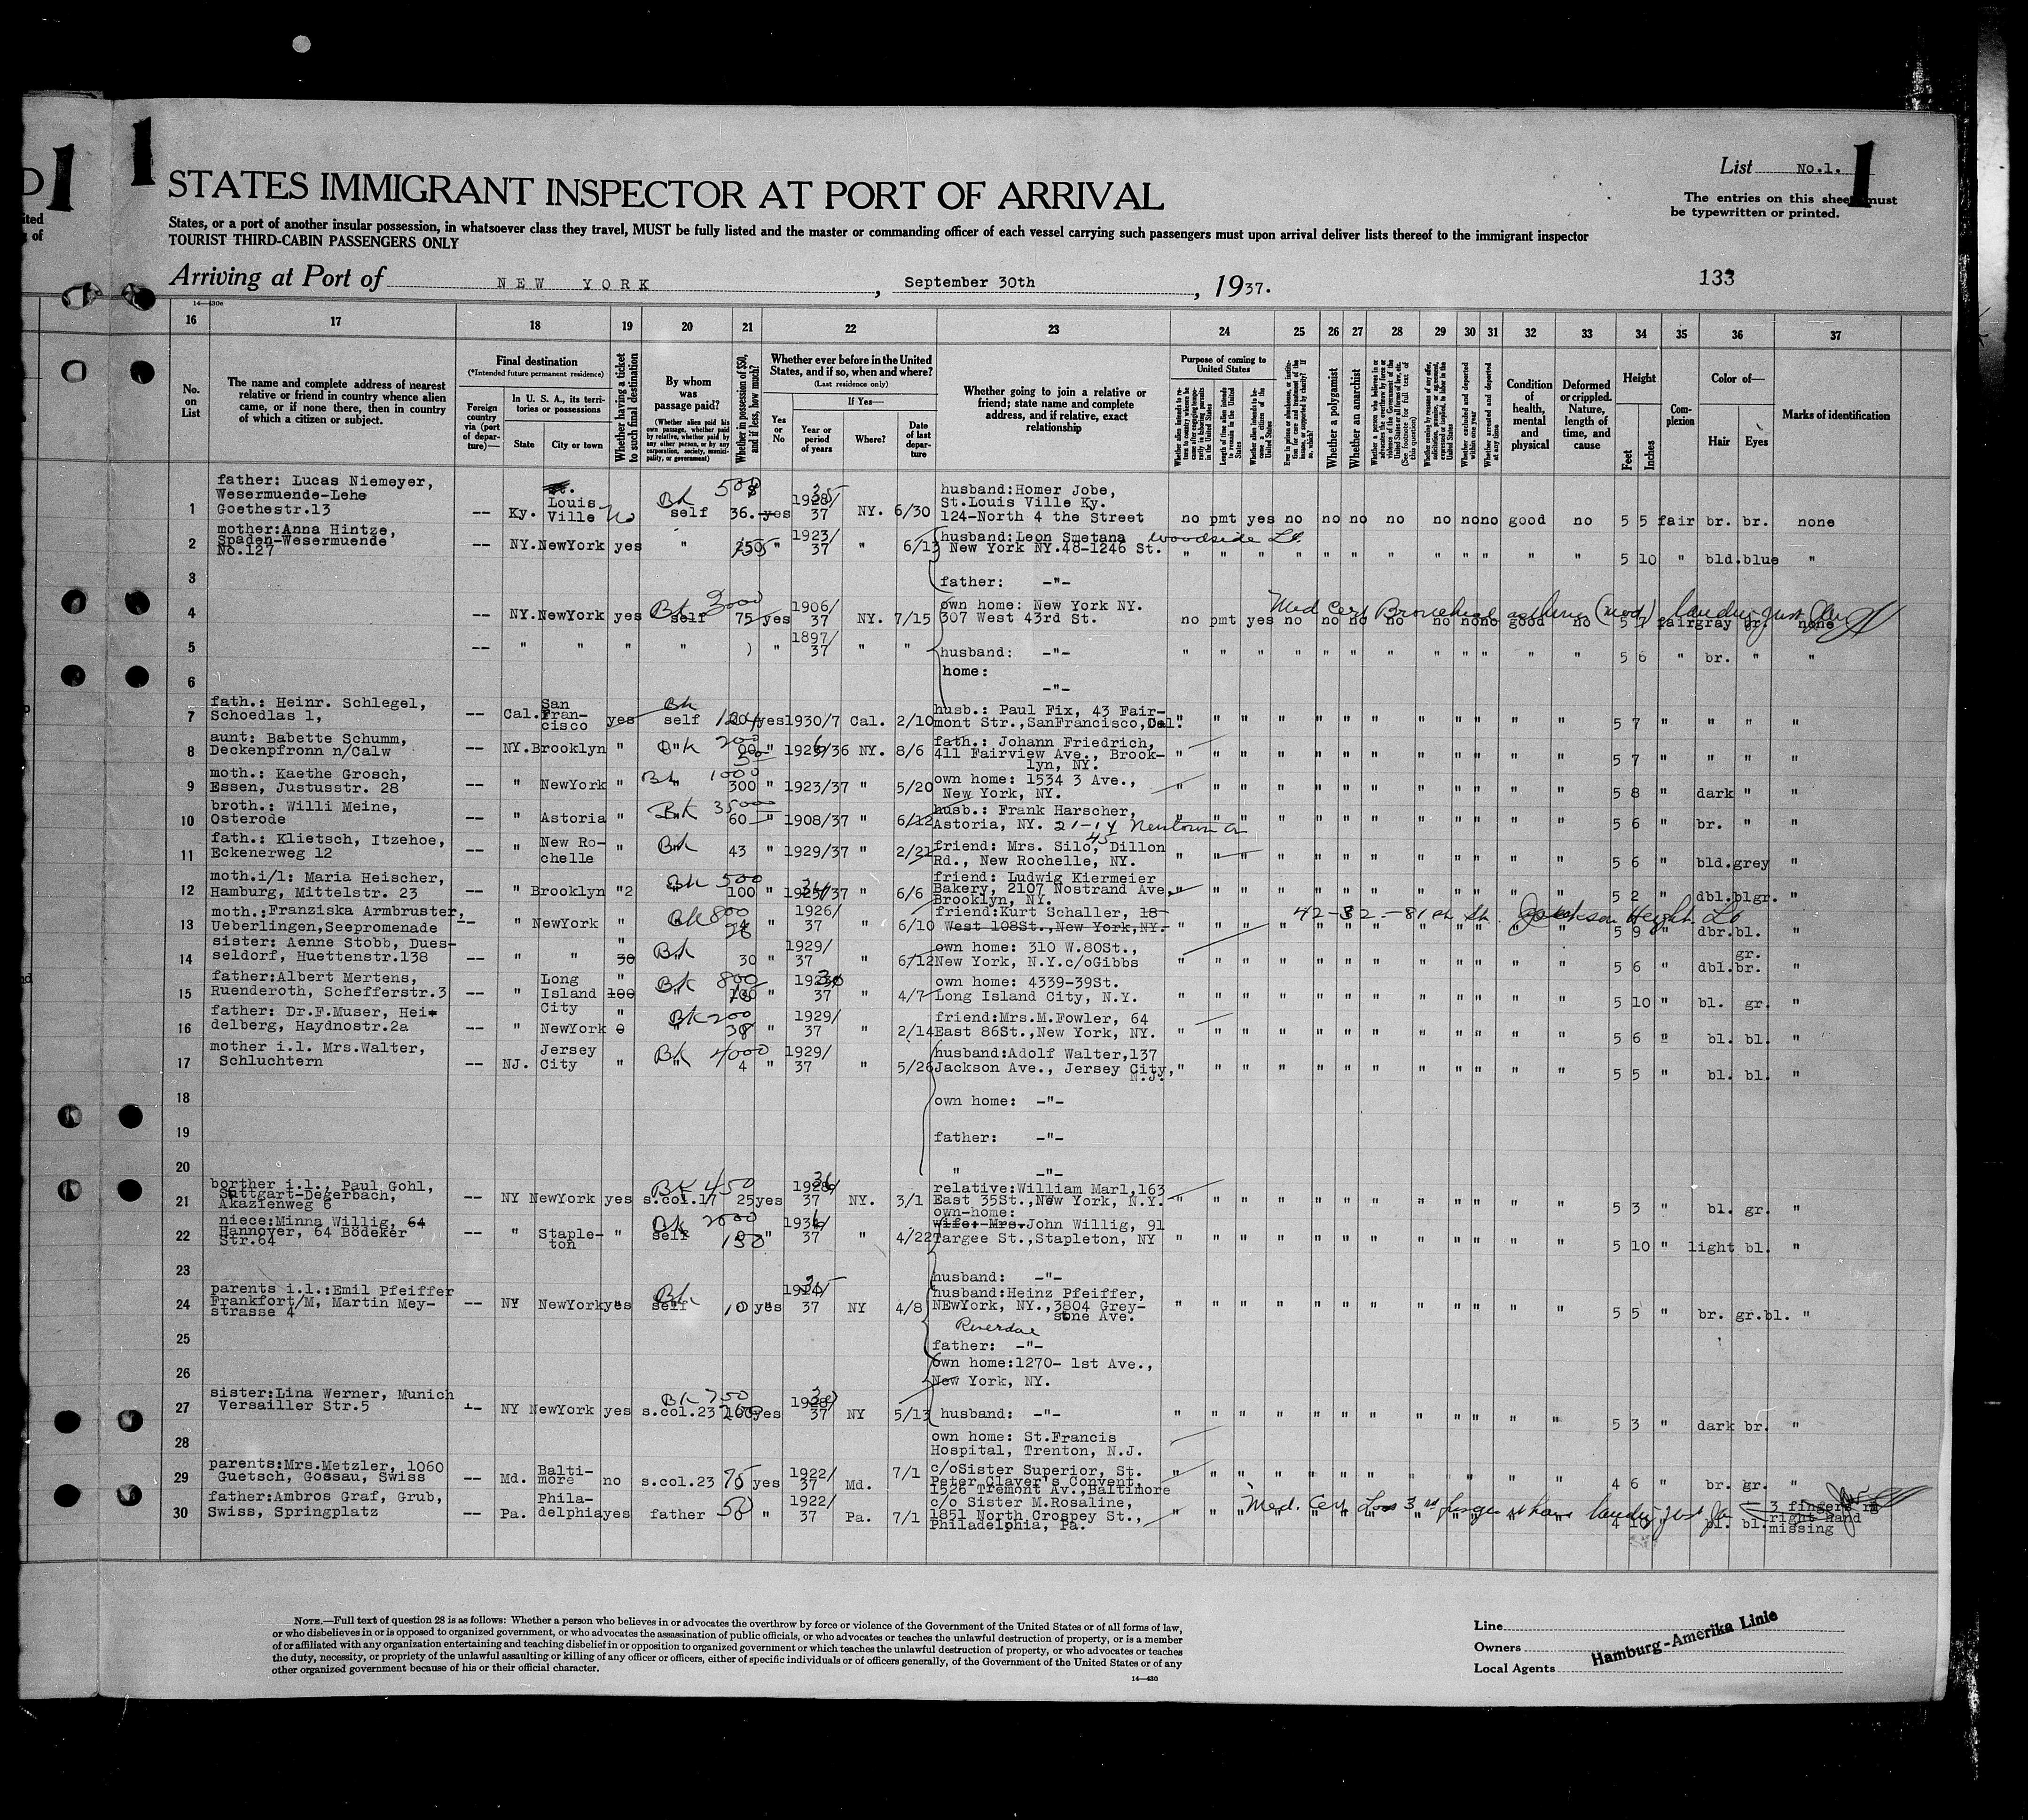 1
1
1
List No.1.
STATES IMMIGRANT INSPECTOR AT PORT OF ARRIVAL
The entries on this sheet must
be typewritten or printed.
States, or a port of another insular possession, in whatsoever class they travel, MUST be fully listed and the master or commanding officer of each vessel carrying such passengers must upon arrival deliver lists thereof to the immigrant inspector
TOURIST THIRD-CABIN PASSENGERS ONLY
Arriving at Port of NEW YORK, September 30th, 1937.
133
14—430e
16 17 18 19 20 21 22 23 24 25 26 27 28 29 30 31 32 33 34 35 36 37
No. on List
The name and complete address of nearest relative or friend in country whence alien came, or if none there, then in country of which a citizen or subject.
Final destination
(*Intended future permanent residence)
Foreign country via (port of departure)—
In U. S. A., its territories or possessions
State
City or town
Whether having a ticket to such final destination
By whom was passage paid?
(Whether alien paid his own passage, whether paid by relative, whether paid by any other person, or by any corporation, society, municipality, or government)
Whether in possession of $50, and if less, how much?
Whether ever before in the United States, and if so, when and where?
(Last residence only)
Yes or No
If Yes—
Year or period of years
Where?
Date of last departure
Whether going to join a relative or friend; state name and complete address, and if relative, exact relationship
Purpose of coming to United States
Whether a polygamist
Whether an anarchist
Condition of health, mental and physical
Deformed or crippled. Nature, length of time, and cause
Height
Feet
Inches
Complexion
Color of—
Hair
Eyes
Marks of identification
1 father: Lucas Niemeyer, Wesermuende-Lehe Goethestr.13 -- Ky. Louis Ville No Bk 500 self 36. yes 37 NY. 6/30 husband:Homer Jobe, St.Louis Ville Ky. 124-North 4 the Street no pmt yes no no no no no no no good no 5 5 fair br. br. none
2 mother:Anna Hintze, Spaden-Wesermuende No.127 -- NY. NewYork yes " " 1923/37 " 6/13 husband:Leon Smetana Woodside L.I. New York NY.48-1246 St. " " " " " " " " " " " " 5 10 " bld. blue "
3 father: -"-
4 -- NY. NewYork yes Bk 3000 self 75 yes 1906/37 NY. 7/15 own home: New York NY. 307 West 43rd St. no pmt yes no no no no no no no good no fair gray br. none Med Cert Bronchial asthma (mod)
5 -- " " " " " 1897/37 " " husband: -"- " " " " " " " " " " " " 5 6 " br. " "
6 home: -"-
7 fath.: Heinr. Schlegel, Schoedlas 1, -- Cal. San Francisco yes Bk self yes 1930/7 Cal. 2/10 husb.: Paul Fix, 43 Fairmont Str.,SanFrancisco,Cal. " " " " " " " " " " " " 5 7 " " " "
8 aunt: Babette Schumm, Deckenpfronn n/Calw -- NY. Brooklyn " 200 " NY. 8/6 fath.: Johann Friedrich, 411 Fairview Ave., Brooklyn, NY. " " " " " " " " " " " " 5 7 " " " "
9 moth.: Kaethe Grosch, Essen, Justusstr. 28 -- " NewYork " Bk 1000 300 " 1923/37 " 5/20 own home: 1534 3 Ave., New York, NY. " " " " " " " " " " " " 5 8 " dark " "
10 broth.: Willi Meine, Osterode -- " Astoria " Bk 60 " 1908/37 " 6/12 husb.: Frank Harscher, Astoria, NY. 21-14 Newtown Av " " " " " " " " " " " " 5 6 " br. " "
11 fath.: Klietsch, Itzehoe, Eckenerweg 12 -- " New Rochelle " Bk 43 " 1929/37 " 2/21 friend: Mrs. Silo, 45 Dillon Rd., New Rochelle, NY. " " " " " " " " " " " " 5 6 " bld. grey "
12 moth.i/l: Maria Heischer, Hamburg, Mittelstr. 23 -- " Brooklyn "2 Bk 500 100 " " 6/6 friend: Ludwig Kiermeier Bakery, 2107 Nostrand Ave, Brooklyn, NY. " " " " " " " " " " " " 5 2 " dbl. blgr. "
13 moth.:Franziska Armbruster, Ueberlingen,Seepromenade -- " NewYork " Bk 800 " 1926/37 " 6/10 friend:Kurt Schaller, 18- West 108St.,New York,NY. 42-32-81 st St. Jackson Heights L.I. " " " " " " " " " " " " 5 9 " dbr. bl. "
14 sister: Aenne Stobb, Duesseldorf, Huettenstr.138 -- " " " 30 Bk 30 " 1929/37 " 6/12 own home: 310 W.80St., New York, N.Y.c/oGibbs " " " " " " " " " " " " 5 6 " dbl. gr. br. "
15 father:Albert Mertens, Ruenderoth, Schefferstr.3 -- " Long Island City " 100 Bk 800 " 37 " 4/7 own home: 4339-39St. Long Island City, N.Y. " " " " " " " " " " " " 5 10 " bl. gr. "
16 father: Dr.F.Muser, Heidelberg, Haydnostr.2a -- " NewYork " 0 Bk 200 " 1929/37 " 2/14 friend:Mrs.M.Fowler, 64 East 86St.,New York, NY. " " " " " " " " " " " " 5 6 " bl. bl. "
17 mother i.l. Mrs.Walter, Schluchtern -- NJ. Jersey City " Bk 4000 4 " 1929/37 " 5/26 husband:Adolf Walter,137 Jackson Ave., Jersey City, N.J. " " " " " " " " " " " " 5 5 " bl. bl. "
18 own home: -"-
19 father: -"-
20 " -"-
21 borther i.l., Paul Gohl, Stuttgart-Degerbach, Akazienweg 6 -- NY NewYork yes BK 450 s.col.17 25 yes 37 NY. 3/1 relative:William Marl,163 East 35St.,New York, N.Y. " " " " " " " " " " " " 5 3 " bl. gr. "
22 niece:Minna Willig, 64 Hannover, 64 Bödeker Str.64 -- " Stapleton " Bk 2000 self 150 " 37 " 4/22 own-home: wife: Mrs. John Willig, 91 Targee St.,Stapleton, NY " " " " " " " " " " " " 5 10 " light bl. "
23 husband: -"-
24 parents i.l.:Emil Pfeiffer Frankfort/M, Martin Meystrasse 4 -- NY NewYork yes Bk self 10 yes 37 NY 4/8 husband:Heinz Pfeiffer, NEwYork, NY.,3804 Greystone Ave. Riverdale " " " " " " " " " " " " 5 5 " br. gr.bl. "
25 father: -"-
26 own home:1270- 1st Ave., New York, NY.
27 sister:Lina Werner, Munich Versailler Str.5 -- NY NewYork yes BK 750 s.col.23 yes 37 NY 5/13 husband: -"- " " " " " " " " " " " " 5 3 " dark br. "
28 own home: St.Francis Hospital, Trenton, N.J.
29 parents:Mrs.Metzler, 1060 Guetsch, Gossau, Swiss -- Md. Baltimore no s.col.23 75 yes 1922/37 Md. 7/1 c/oSister Superior, St. Peter Claver's Convent, 1526 Tremont Av.,Baltimore " " " " " " " " " " " " 4 6 " br. gr. "
30 father:Ambros Graf, Grub, Swiss, Springplatz -- Pa. Philadelphia yes father 50 " 1922/37 Pa. 7/1 c/o Sister M.Rosaline, 1851 North Crospey St., Philadelphia, Pa. Med. Cert Loss 3 4 10 bl. bl. 3 fingers right hand missing
NOTE.—Full text of question 28 is as follows: Whether a person who believes in or advocates the overthrow by force or violence of the Government of the United States or of all forms of law,
or who disbelieves in or is opposed to organized government, or who advocates the assassination of public officials, or who advocates or teaches the unlawful destruction of property, or is a member
of or affiliated with any organization entertaining and teaching disbelief in or opposition to organized government or which teaches the unlawful destruction of property, or who advocates or teaches
the duty, necessity, or propriety of the unlawful assaulting or killing of any officer or officers, either of specific individuals or of officers generally, of the Government of the United States or of any
other organized government because of his or their official character.
14—430
Line
Owners
Local Agents
Hamburg-Amerika Linie